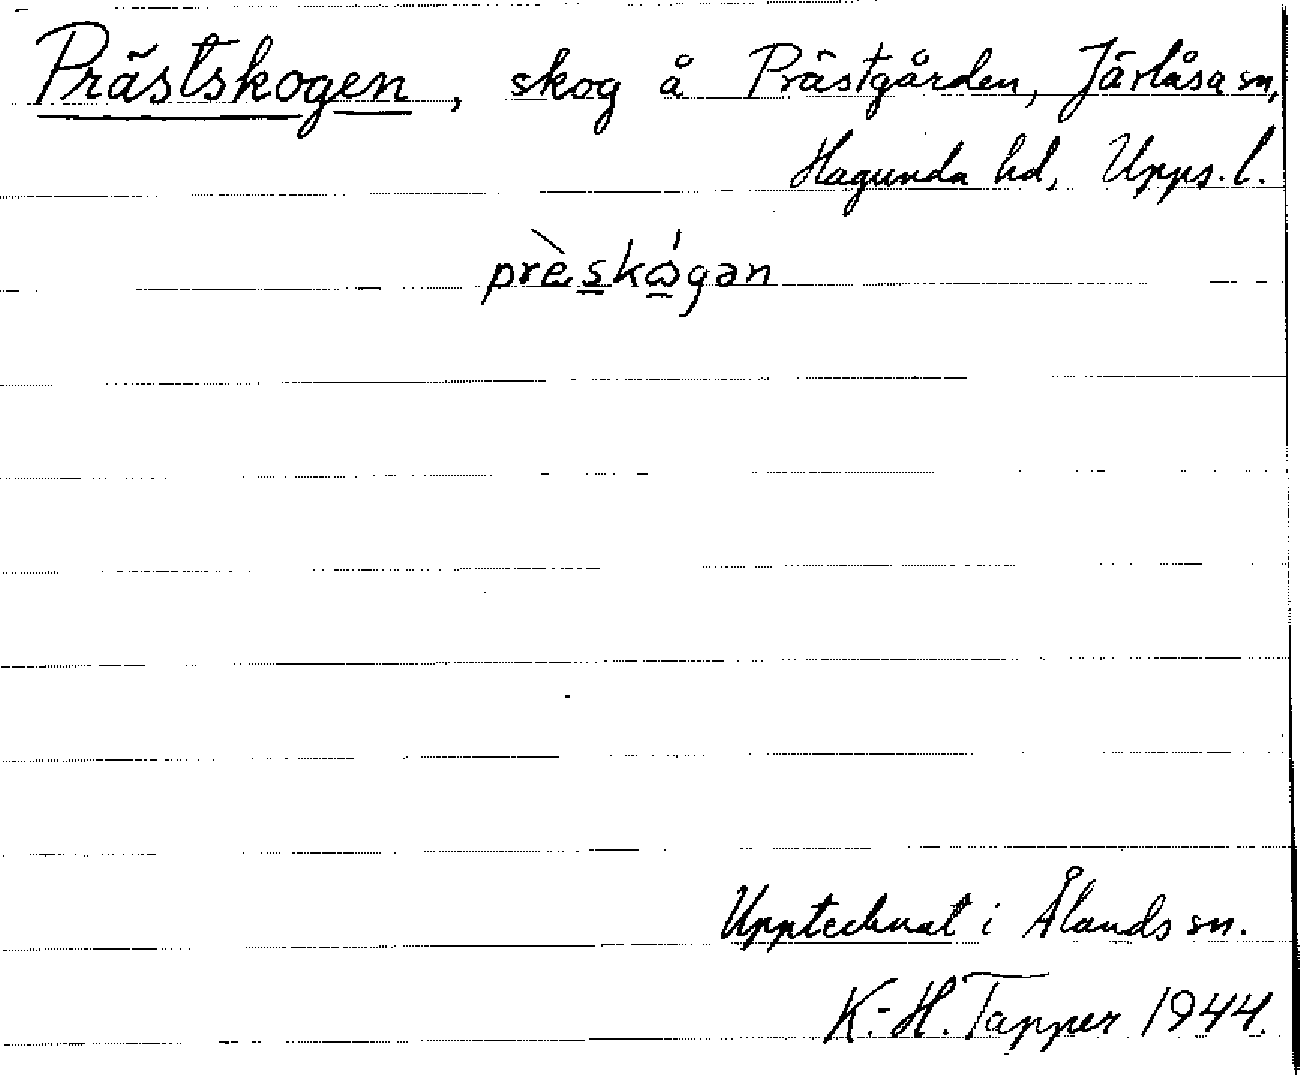 Prästskogen, skog å Prästgården, Järlåsa sn,
Hagunda hd, Upps. l.
prèskógan
Upptecknat i Ålands sn.
K.-H. Tapper 1944.